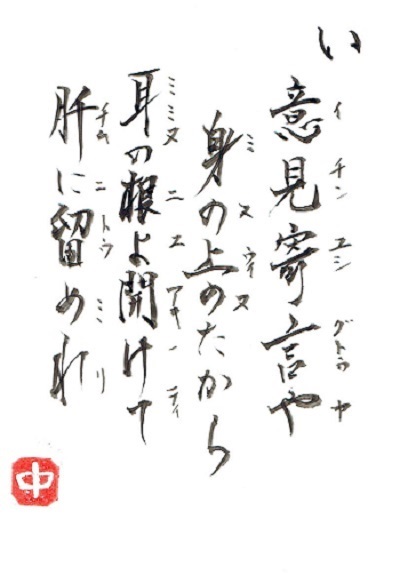 い
意見寄言や
イ チン ユシ グトゥ ヤ
身の上のたから
ミ ヌ ウィ ヌ
耳の根よ開けて
ミミ ヌ ニ ユ アキ ティ
肝に留めれ
チム ニ トゥ ミ リ
中